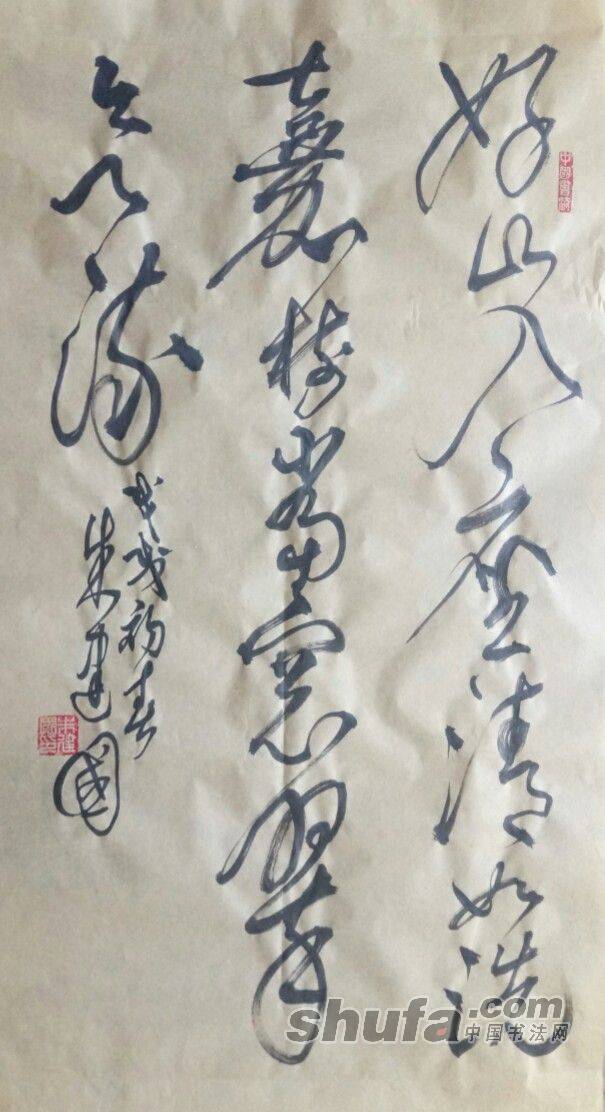 好山入座清如洗
嘉樹當窗翠
欲流
戊戌初春
朱建國
shufa.com
中国书法网